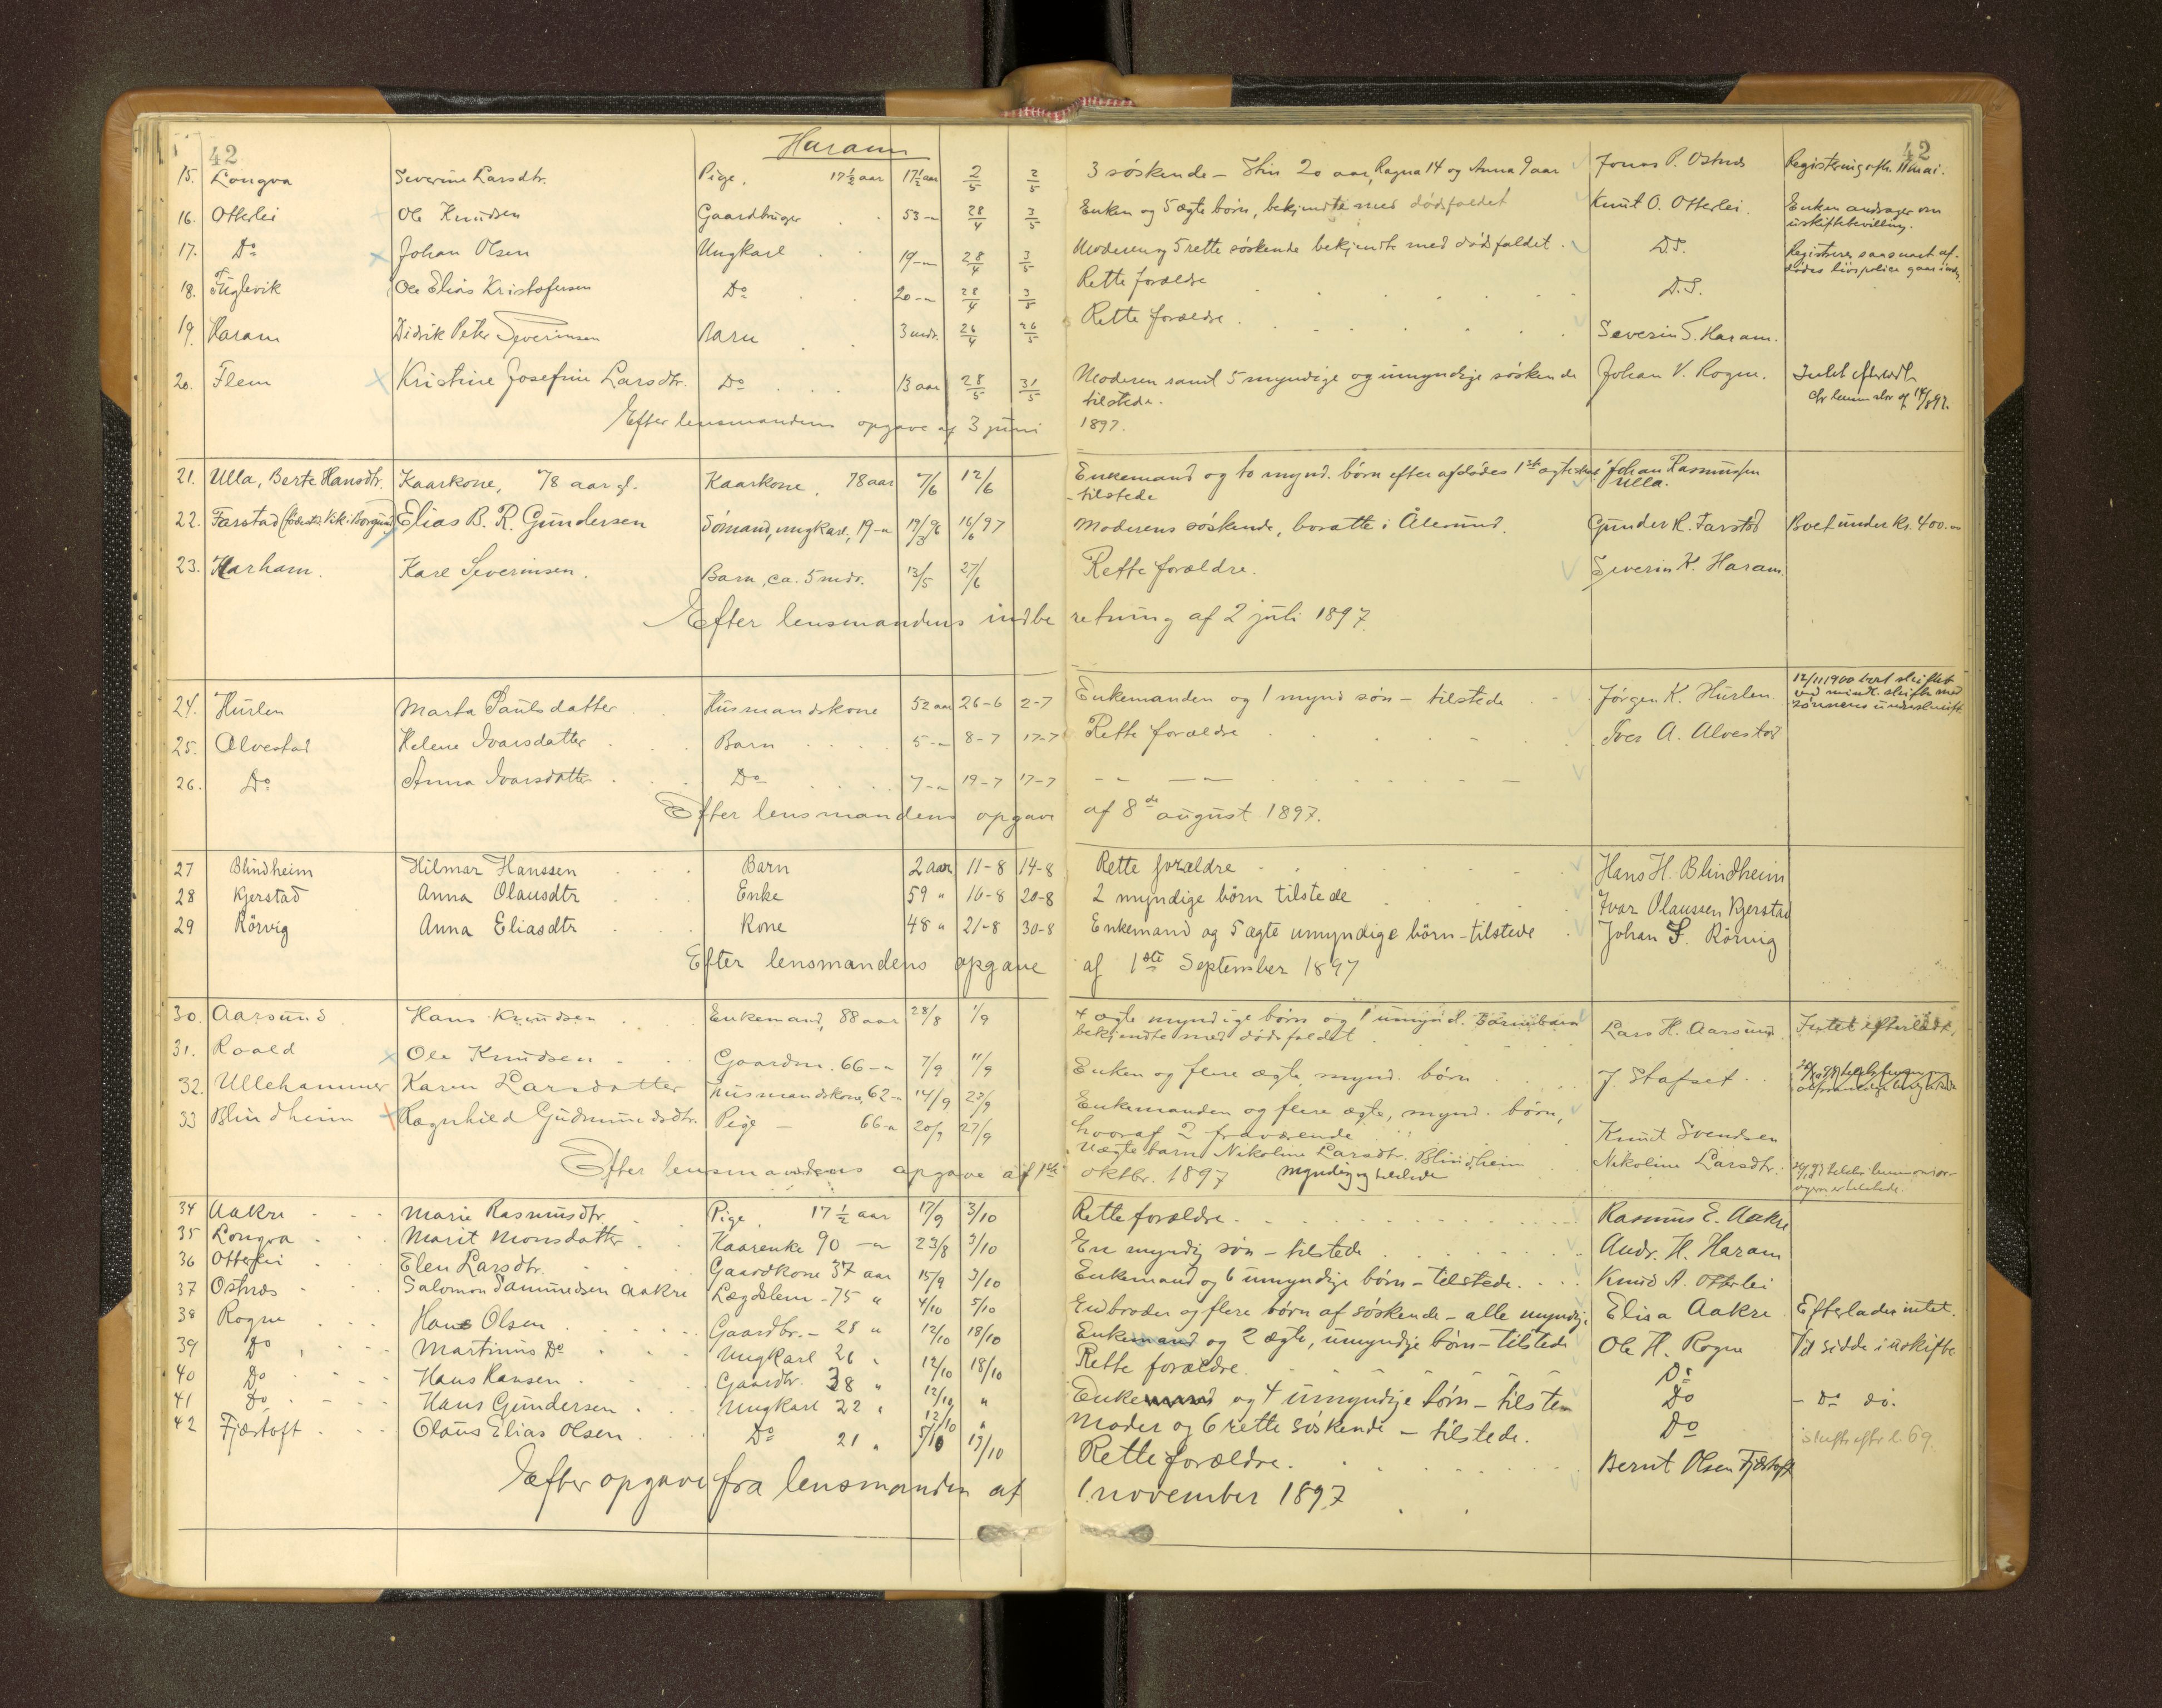 42 Haram 42
15. Longva Severine Larsdtr. Pige, 17½ aar 17½ aar 2/5 2/5 3 söskende - Stin 20 aar, Ragna 14 og Anna 9 aar Jonas P. Östnes Registrering afh. 11 mai.
16. Otterlei Ole Knudsen Gaardbruger 53 -"- 28/4 3/5 Enken og 5 ægte börn, bekjendte med dödsfaldet Knut O. Otterlei. Enken andrager om
uskiftebevilling.
17. Do Johan Olsen Ungkarl 19 -"- 28/4 3/5 Moderen og 5 rette söskende bekjendt med dödsfaldet. D.S. Registreres saasnart af-
dödes livspolice gaar ind.
18. Fuglevik Ole Elias Kristofersen Do 20 -"- 28/4 3/5 Rette forældre D.S.
19. Haram Didrik Peter Severinsen Barn 3 mdr. 26/4 26/5 Rette forældre. Severin S. Haram.
20. Flem Kristine Josefine Larsdtr. Do 13 aar 28/5 31/5 Moderen samt 5 myndige og umyndige söskende Johan V. Rogne. Intet efterladt
tilstede. cfr lensm skr af 14/8 97.
Efter lensmandens opgave af 3 juni 1897.
21. Ulla, Berte Hansdtr. Kaarkone, 78 aar gl. Kaarkone, 78 aar 7/6 12/6 Enkemand og to mynd. börn efter afdödes 1ste ægteskab Johan Rasmussen
- tilstede Ulla.
22. Farstad (födested Vik i Borgund) Elias B. R. Gundersen Sömand, ungkarl, 19 -"- 19/3 96 16/6 97 Moderens söskende, bosatte i Ålesund. Gunder R. Farstad Boet under kr. 400.
23. Harham. Karl Severinsen. Barn, ca. 5 mdr. 13/5 27/6 Rette forældre. Severin K. Haram.
Efter lensmandens indberetning af 2 juli 1897.
24. Hurlen Marta Paulsdatter Husmandskone 52 aar 26-6 2-7 Enkemanden og 1 mynd sön - tilstede Jörgen K. Hurlen. 12/11 1900 boet skiftet
ved mindl. skifte med
sönnens underskrift
25. Alvestad Helene Ivarsdatter Barn 5 -"- 8-7 17-7 Rette forældre Iver A. Alvestad
26. Do Anna Ivarsdatter Do 7 -"- 19-7 17-7 -"- -"-
Efter lensmandens opgave af 8de august 1897.
27 Blindheim Hilmar Hanssen Barn 2 aar 11-8 14-8 Rette forældre Hans H. Blindheim
28 Kjerstad Anna Olausdtr Enke 59 " 16-8 20-8 2 myndige börn tilstede Ivar Olaussen Kjerstad
29 Rörvig Anna Eliasdtr Kone 48 " 21-8 30-8 Enkemand og 5 ægte umyndige börn - tilstede Johan S. Rörvig
Efter lensmandens opgave af 1ste September 1897
30. Aarsund Hans Knudsen Enkemand, 88 aar 28/8 1/9 4 ægte myndige börn og 1 umynd. barnebarn Lars H. Aarsund Intet efterladt.
bekjendte med dödsfaldet
31. Roald Ole Knudsen Gaardm. 66 -"- 7/9 11/9 Enken og flere ægte, mynd. börn J. Stafset
32. Ullehammer Karen Larsdatter Husmandskone, 62 -"- 14/9 27/9 Enkemanden og flere ægte, mynd. börn,
hvoraf 2 fraværende Knud Svendsen
33 Blindheim Ragnhild Gudmundsdtr. Pige - 66 -"- 20/9 27/9 Uægte barn Nikoline Larsdtr. Blindheim Nikoline Larsdtr.
myndig og tilstede
Efter lensmandens opgave af 1ste oktbr. 1897
34 Aakre Marie Rasmusdtr. Pige, 17½ aar 17/9 3/10 Rette forældre. Rasmus E. Aakre
35 Longva Marit Monsdatter Kaarenke 90 -"- 23/8 3/10 En myndig sön - tilstede Andr. H. Haram
36 Otterlei Elen Larsdtr. Gaardkone 37 aar 15/9 3/10 Enkemand og 6 umyndige börn - tilstede. Knud A. Otterlei
37 Östnes Salomon Samundsen Aakre Lægdslem - 75 " 4/10 5/10 En broder og flere börn af söskende - alle myndige Elisa Aakre Efterlader intet.
38 Rogne Hans Olsen Gaardbr. - 28 " 12/10 18/10 Enkemand og 2 ægte, umyndige börn - tilstede Ole H. Rogne Vil sidde i uskifte
39 Do Martinus Do Ungkarl 26 " 12/10 18/10 Rette forældre. Do
40 Do Hans Hansen Gaardbr. 38 " 12/10 " Enkemand og 4 umyndige börn - tilstede Do - Do do.
41 Do Hans Gundersen Ungkarl 22 " 12/10 " Moder og 6 rette söskende - tilstede. Do
42 Fjærtoft Olaus Elias Olsen Do 21 " 5/10 19/10 Rette forældre. Bernt Olsen Fjærtoft
Efter opgave fra lensmanden af 1. november 1897